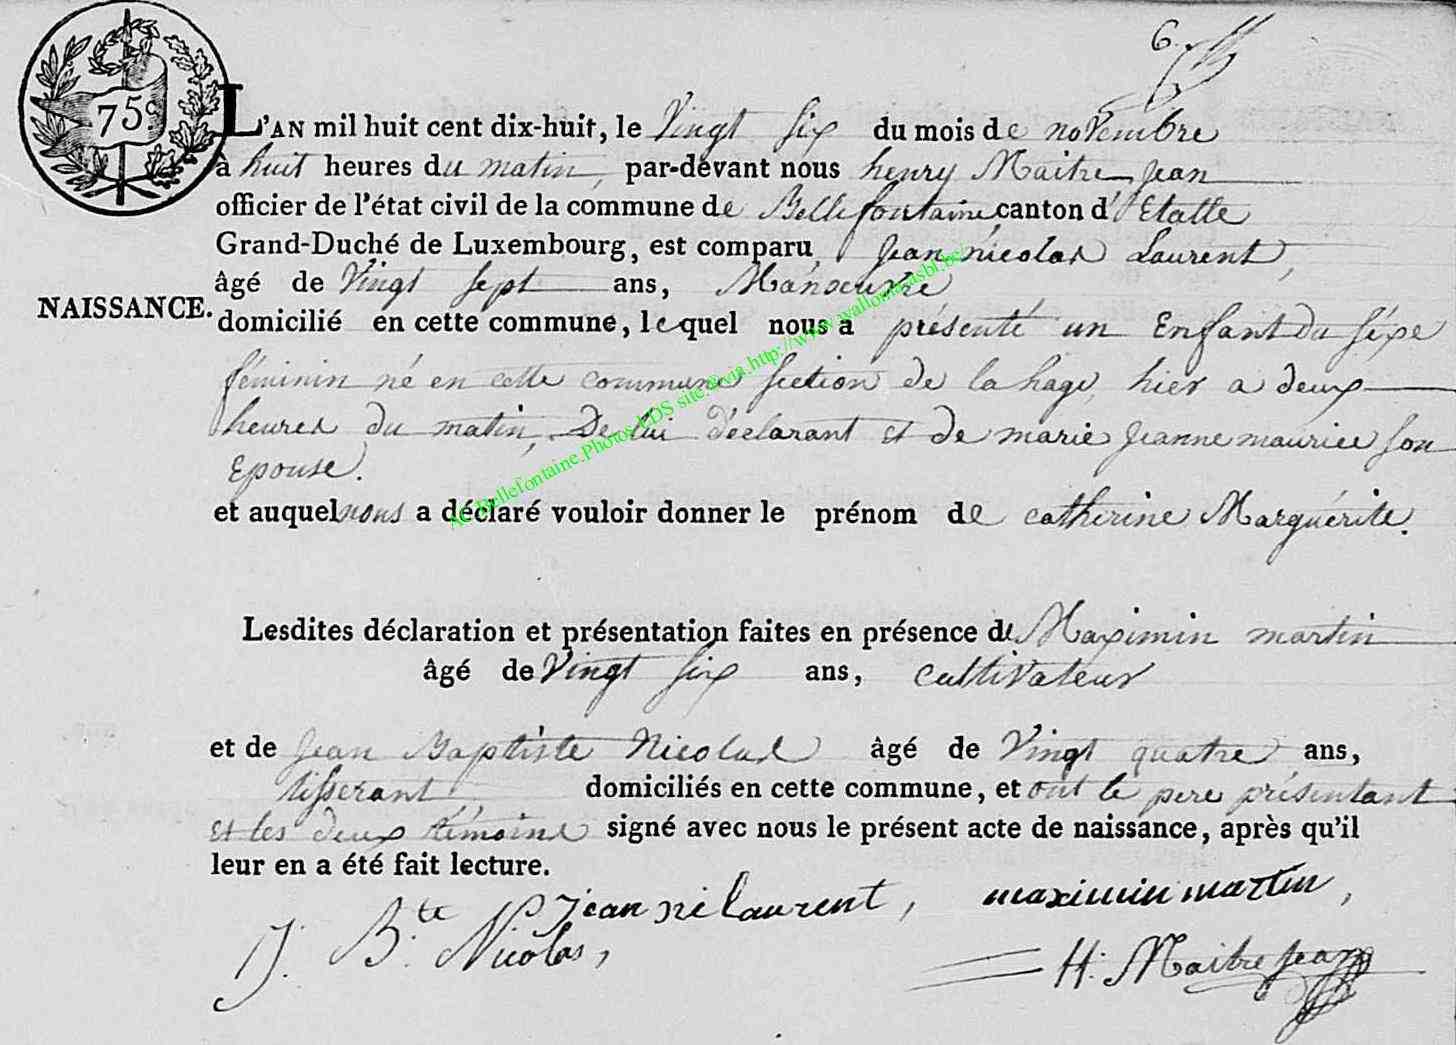 6.
75c
L'AN mil huit cent dix-huit, le Vingt six du mois de novembre
à huit heures du matin, par-devant nous henry Maitre Jean
officier de l'état civil de la commune de Bellefontaine canton d'Etalle
Grand-Duché de Luxembourg, est comparu Jean nicolas Laurent,
âgé de Vingt sept ans, Manoeuvre
NAISSANCE.
domicilié en cette commune, lequel nous a présenté un Enfant du séxe
féminin né en cette commune section de la hage, hier a deux
heures du matin, De lui déclarant et de marie Jeanne maurice son
Epouse.
et auquel nous a déclaré vouloir donner le prénom de catherine Marguérite.
Lesdites déclaration et présentation faites en présence de Maximin martin
âgé de Vingt six ans, cultivateur
et de Jean Baptiste Nicolas âgé de Vingt quatre ans,
tisserant, domiciliés en cette commune, et ont le pere présentant
et les deux témoins signé avec nous le présent acte de naissance, après qu'il
leur en a été fait lecture.
jean ni laurent, maximin martin,
J. B.te Nicolas,
H. Maitrejean
AC Bellefontaine.Photos LDS site @via http://www.wallonia.asbl.be/